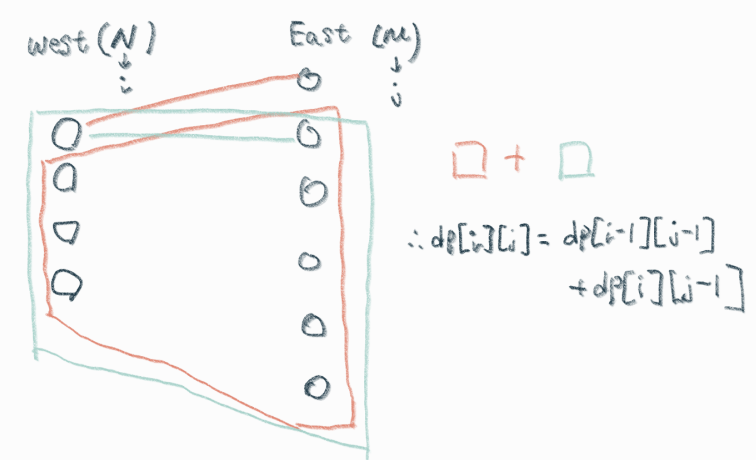 West (N)
East (M)
i
j
+
∴ dp[i][j] = dp[i-1][j-1]
+ dp[i][j-1]